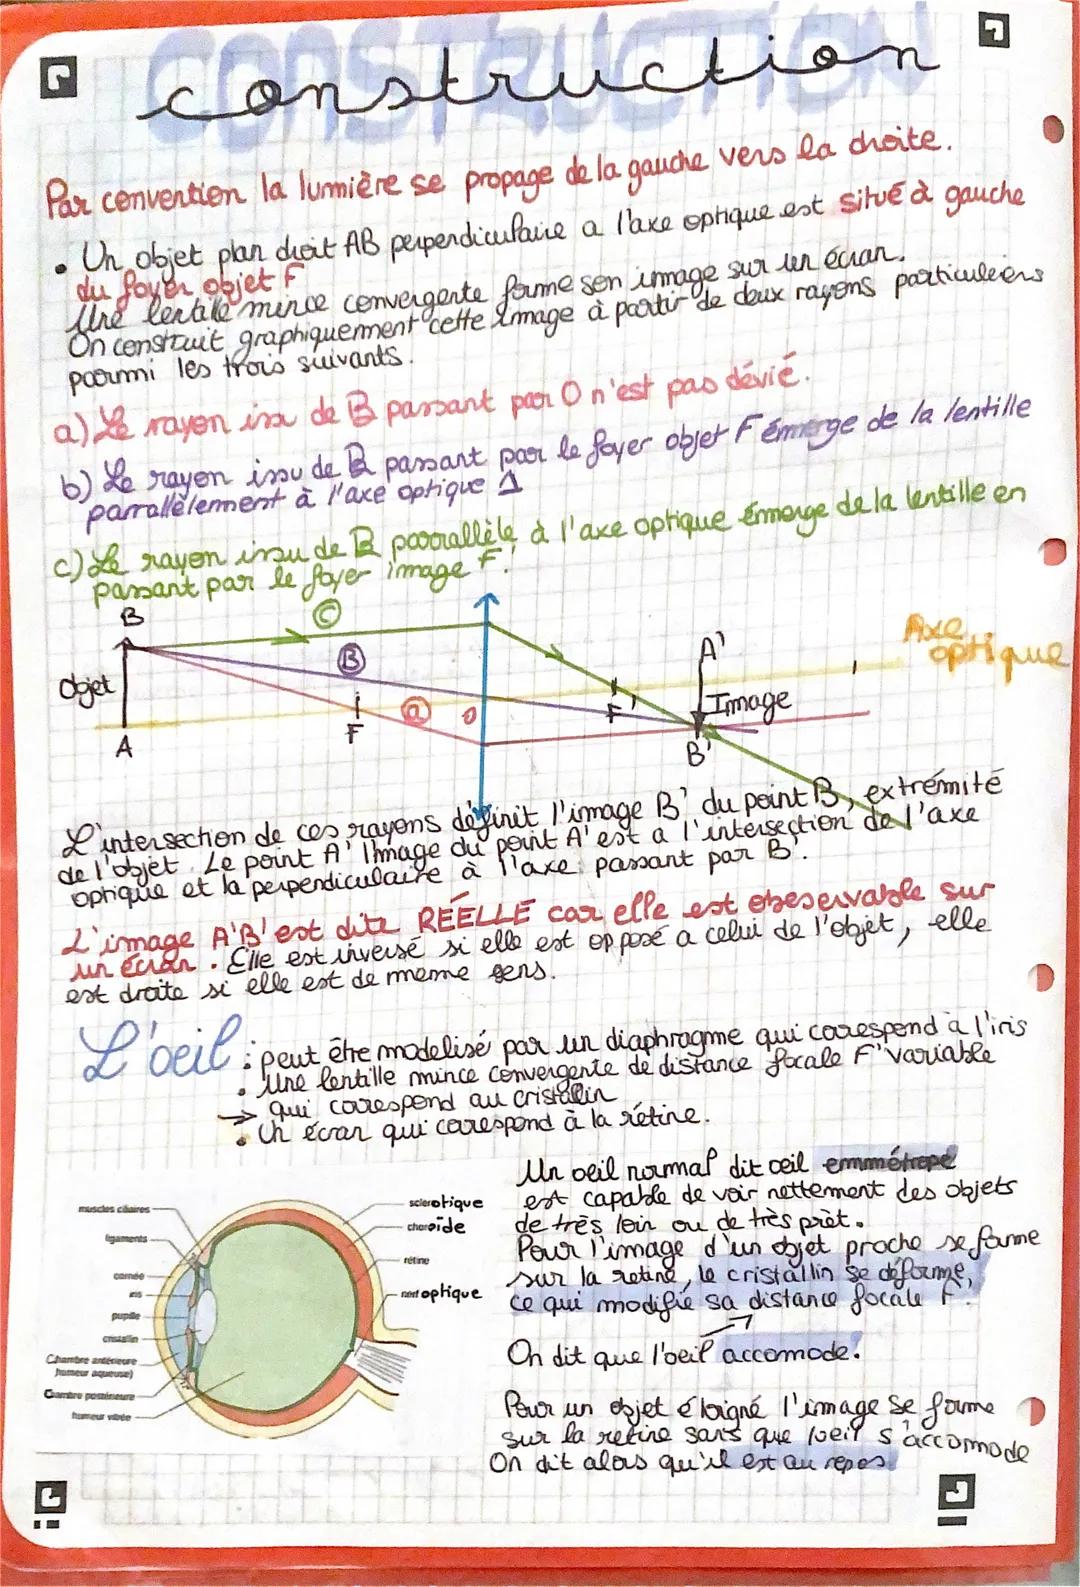 CONSTRUCTION
construction
Par convention la lumière se propage de la gauche vers la droite.
• Un objet plan droit AB perpendiculaire a l'axe optique est situé à gauche
du foyer objet F
Une lentille mince convergente forme son image sur un écran.
On construit graphiquement cette image à partir de deux rayons particuleiers
parmi les trois suivants.
a) Le rayon issu de B passant par O n'est pas dévié.
b) Le rayon issu de B passant par le foyer objet F émerge de la lentille
parrallèlement à l'axe optique Δ
c) Le rayon issu de B parrallèle à l'axe optique émmerge de la lentille en
passant par le foyer image F'.
B
C
Axe
optique
B
A'
Objet
Image
a
O
F
F'
A
B'
L'intersection de ces rayons définit l'image B' du point B, extrémité
de l'objet. Le point A' Image du point A' est a l'intersection de l'axe
optique et la perpendiculaire à l'axe passant par B'.
L'image A'B' est dite RÉELLE car elle est obeservable sur
un écran. Elle est inversé si elle est opposé a celui de l'objet, elle
est droite si elle est de meme sens.
L'oeil : peut être modelisé par un diaphragme qui correspond à l'iris
• Une lentille mince convergente de distance focale F' variable
→ qui correspond au cristallin
• Un écran qui correspond à la rétine.
Un oeil normal dit oeil emmétrope
est capable de voir nettement des objets
de très loin ou de très prèt.
Pour l'image d'un objet proche se forme
sur la retine, le cristallin se déforme,
ce qui modifie sa distance focale F'.
On dit que l'oeil accommode.
Pour un objet éloigné l'image se forme
sur la retine sans que l'oeil s'accomode
On dit alors qu'il est au repos.
muscles ciliaires
ligaments
cornée
iris
pupille
cristallin
Chambre antérieure
(humeur aqueuse)
Chambre postérieure
humeur vitrée
sclérotique
choroïde
rétine
nerf optique